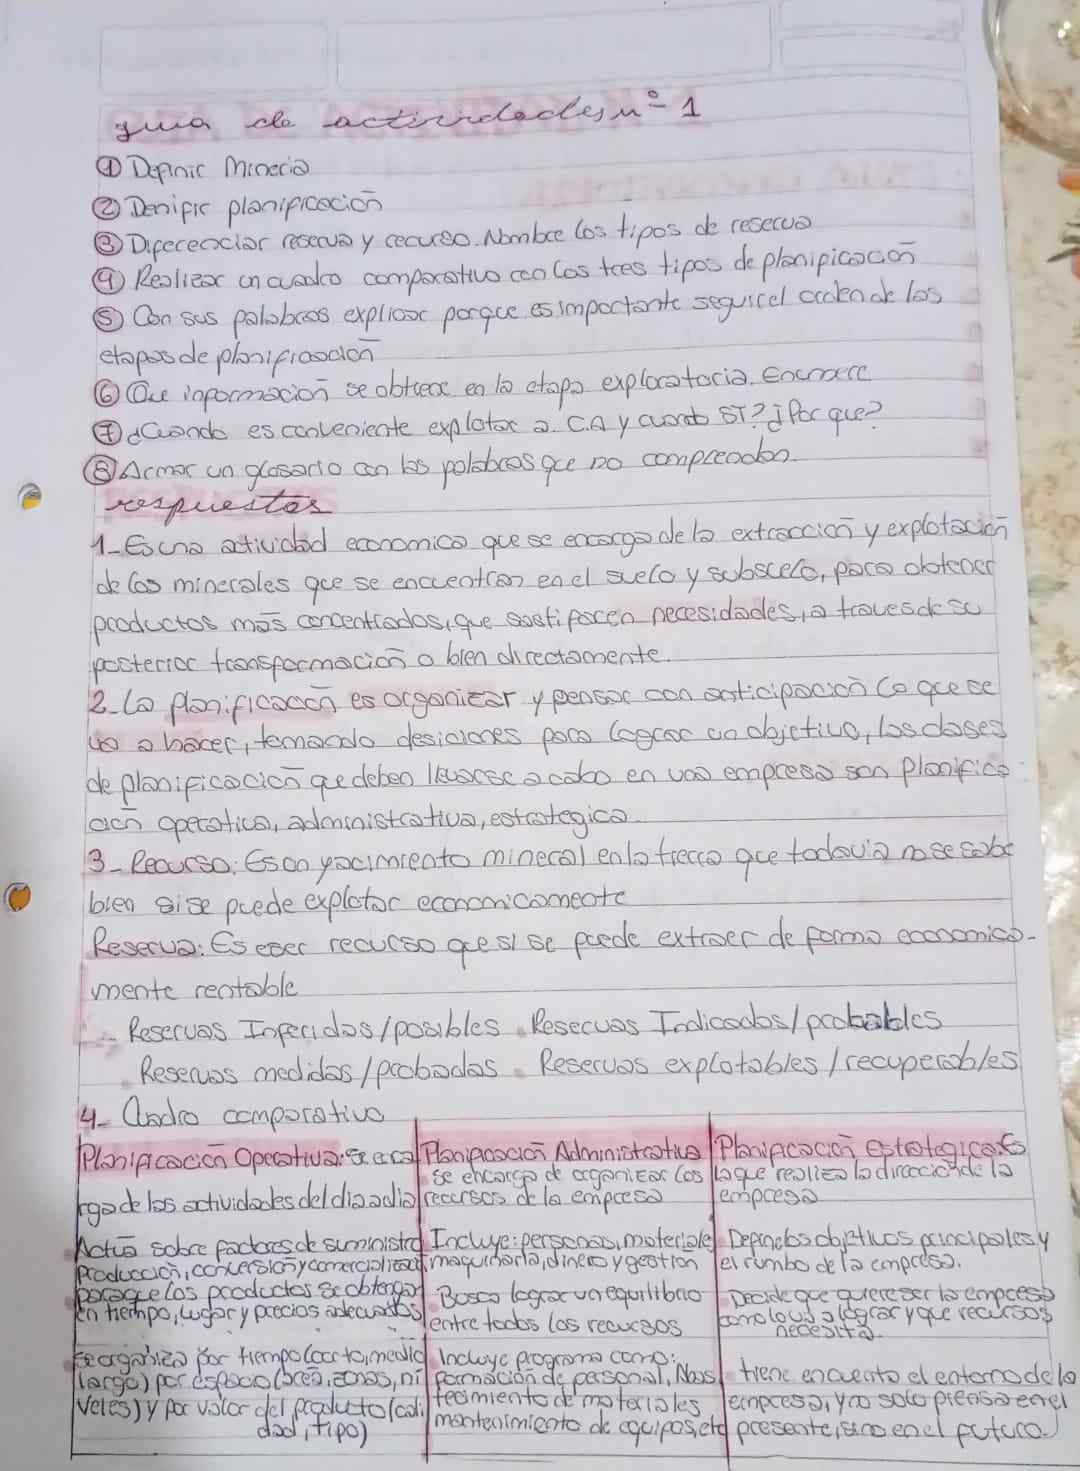 guia de actividades nº 1
① Definir Mineria
② Denifir planificación
③ Diferenciar reserva y recurso. Nombre los tipos de reserva
④ Realizar un cuadro comparativo con los tres tipos de planificación
⑤ Con sus palabras explicar porque es importante seguir el orden de las
etapas de planificación
⑥ Que información se obtiene en la etapa exploratoria. Enumere
⑦ ¿Cuando es conveniente explotar a C.A y cuando ST? ¿Por que?
⑧ Armar un glosario con las palabras que no comprendan.
respuestas
1- Es una actividad economica que se encarga de la extracción y explotación
de los minerales que se encuentran en el suelo y subsuelo, para obtener
productos más concentrados, que sastifacen necesidades, a traves de su
posterior transformación o bien directamente.
2- La planificación es organizar y pensar con anticipación lo que se
va a hacer, temando desiciones para lograr un objetivo, las clases
de planificación que deben llevarse a cabo en una empresa son planifica
ción operativa, administrativa, estrategica.
3- Recurso: Es un yacimiento mineral en la tierra que todavia no se sabe
bien si se puede explotar economicamente
Reserva: Es eser recurso que si se puede extraer de forma economica-
mente rentable
Reservas Inferidas/posibles . Reservas Indicadas/probables
. Reservas medidas/probadas . Reservas explotables/recuperables
4- Cuadro comparativo
Planificación Operativa: Se encar
rga de las actividades del dia a dia
Planificación Administrativa
se encarga de organizar los
recursos de la empresa
Planificación estrategica: Es
la que realiza la dirección de la
empresa
Actúa sobre factores de suministro
producción, conversión y comercialización
para que los productos se obtengan
en tiempo, lugar y precios adecuados
Incluye: personas, materiales
maquinaria, dinero y gestion
Busca lograr un equilibrio
entre todos los recursos
Define los objetivos principales y
el rumbo de la empresa.
Decide que quiere ser la empresa
como lo va a lograr y que recursos
necesita.
se organiza por tiempo (corto, medio
largo) por espacio (area, zonas, ni
veles) y por valor del producto (cali
dad, tipo)
Incluye programa como:
formación de personal, Abas
tecimiento de materiales
mantenimiento de equipos, etc
tiene encuenta el entorno de la
empresa, y no solo piensa en el
presente, sino en el futuro.